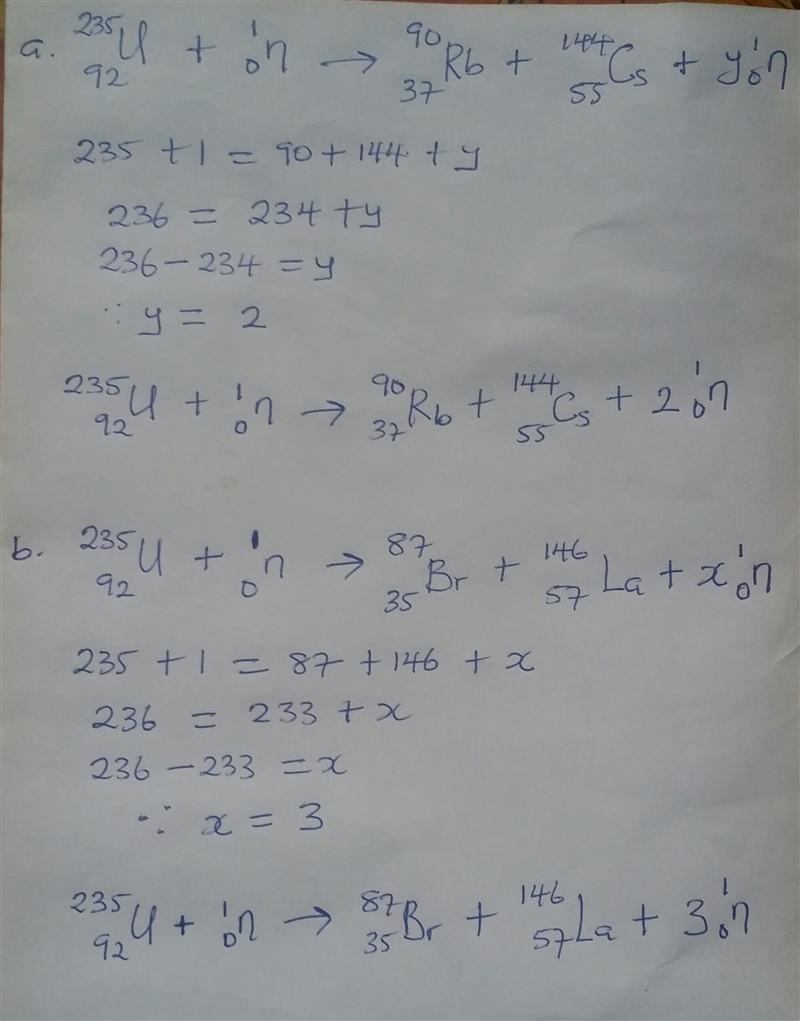 a. ²³⁵₉₂U + ¹₀n → ⁹⁰₃₇Rb + ¹⁴⁴₅₅Cs + y¹₀n
235 + 1 = 90 + 144 + y
236 = 234 + y
236 - 234 = y
∵ y = 2
²³⁵₉₂U + ¹₀n → ⁹⁰₃₇Rb + ¹⁴⁴₅₅Cs + 2¹₀n
b. ²³⁵₉₂U + ¹₀n → ⁸⁷₃₅Br + ¹⁴⁶₅₇La + x¹₀n
235 + 1 = 87 + 146 + x
236 = 233 + x
236 - 233 = x
∵ x = 3
²³⁵₉₂U + ¹₀n → ⁸⁷₃₅Br + ¹⁴⁶₅₇La + 3¹₀n